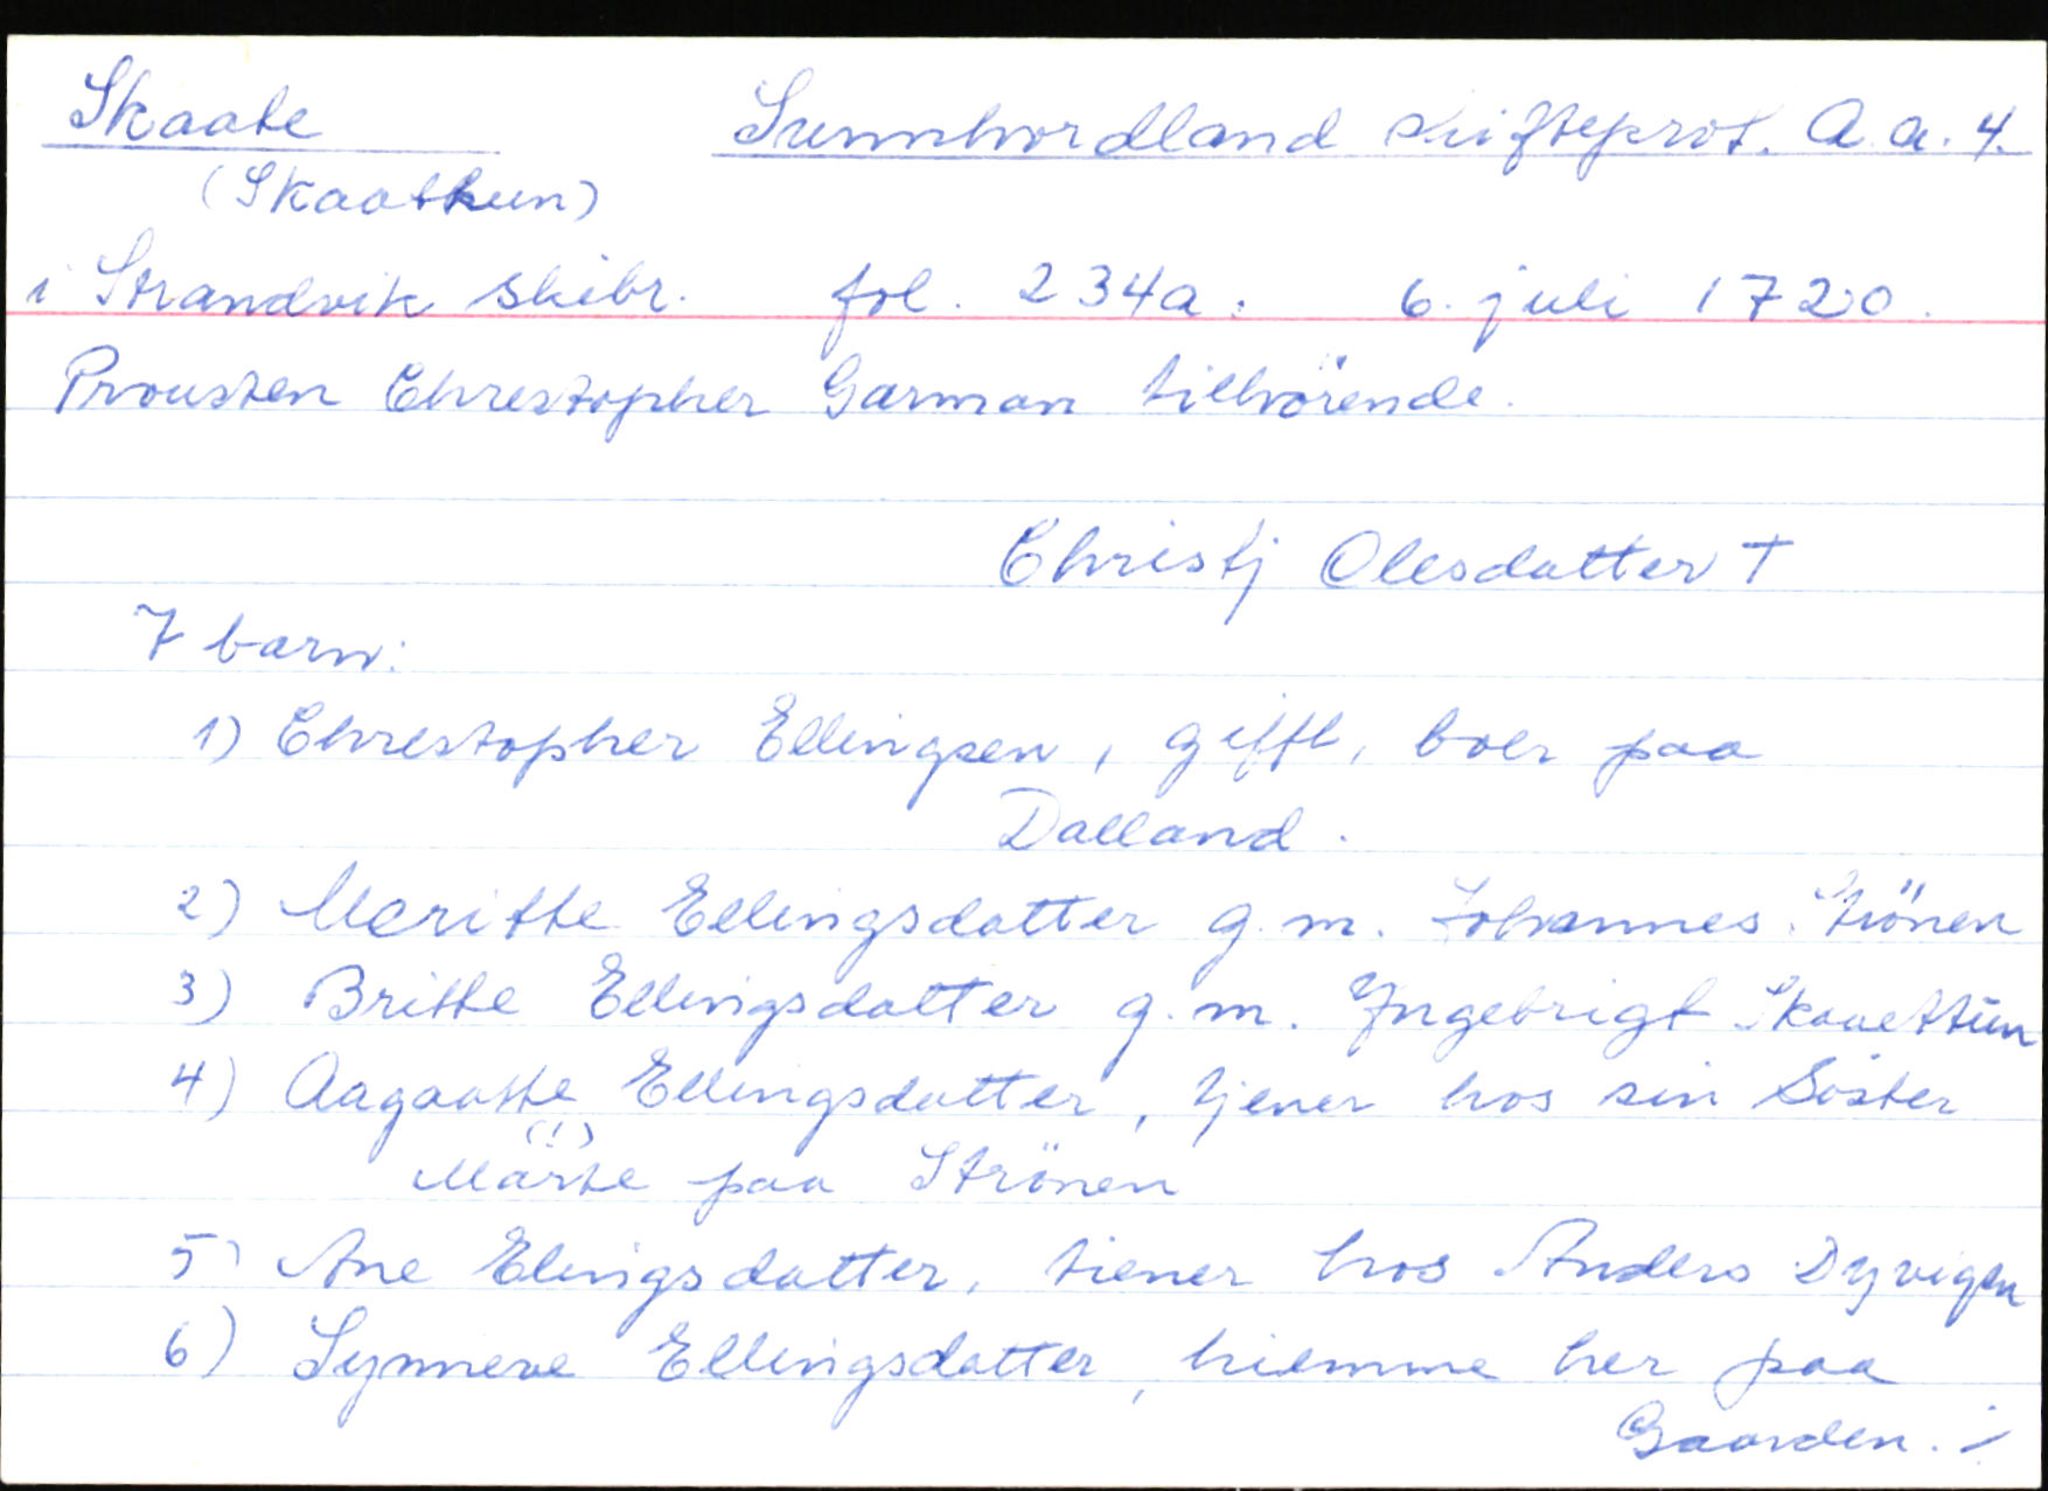 Skaate Sunnhordland skifteprot. A. a. 4.
(Skaathun)
i Strandvik skibr. fol. 234a: 6. juli 1720.
Prousten Chrestopher Garman tilhörende.
Christj Olesdatter †
7 barn:
1) Chrestopher Ellingsen, gifft, boer paa
Dalland.
2) Meritte Ellingsdatter g. m. Johannes Strönen
3) Britte Ellingsdatter g. m. Yngebrigt Skouettün
4) Aagaatte Ellingsdatter, tjener hos sin Söster
(!)
Märte paa Strönen
5) Ane Elingsdatter, tiener hos Anders Dyvigen
6) Synneve Ellingsdatter, hiemme her paa
Gaarden. ./.